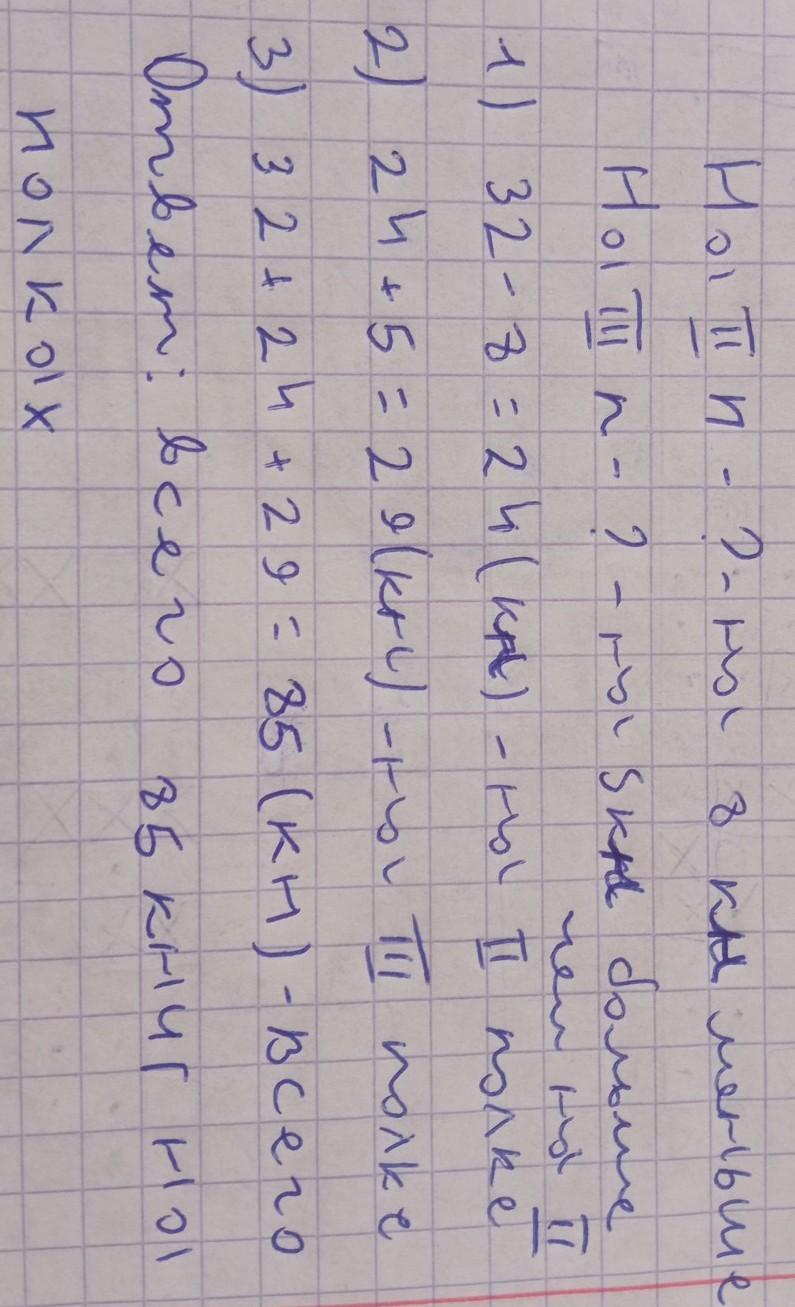 На II п - ? - на 8 кн меньше
На III п - ? - на 5 кн больше
чем на II
1) 32 - 8 = 24 (кн) - на II полке
2) 24 + 5 = 29 (кн) - на III полке
3) 32 + 24 + 29 = 85 (кн) - всего
Ответ: всего 85 книг на
полках